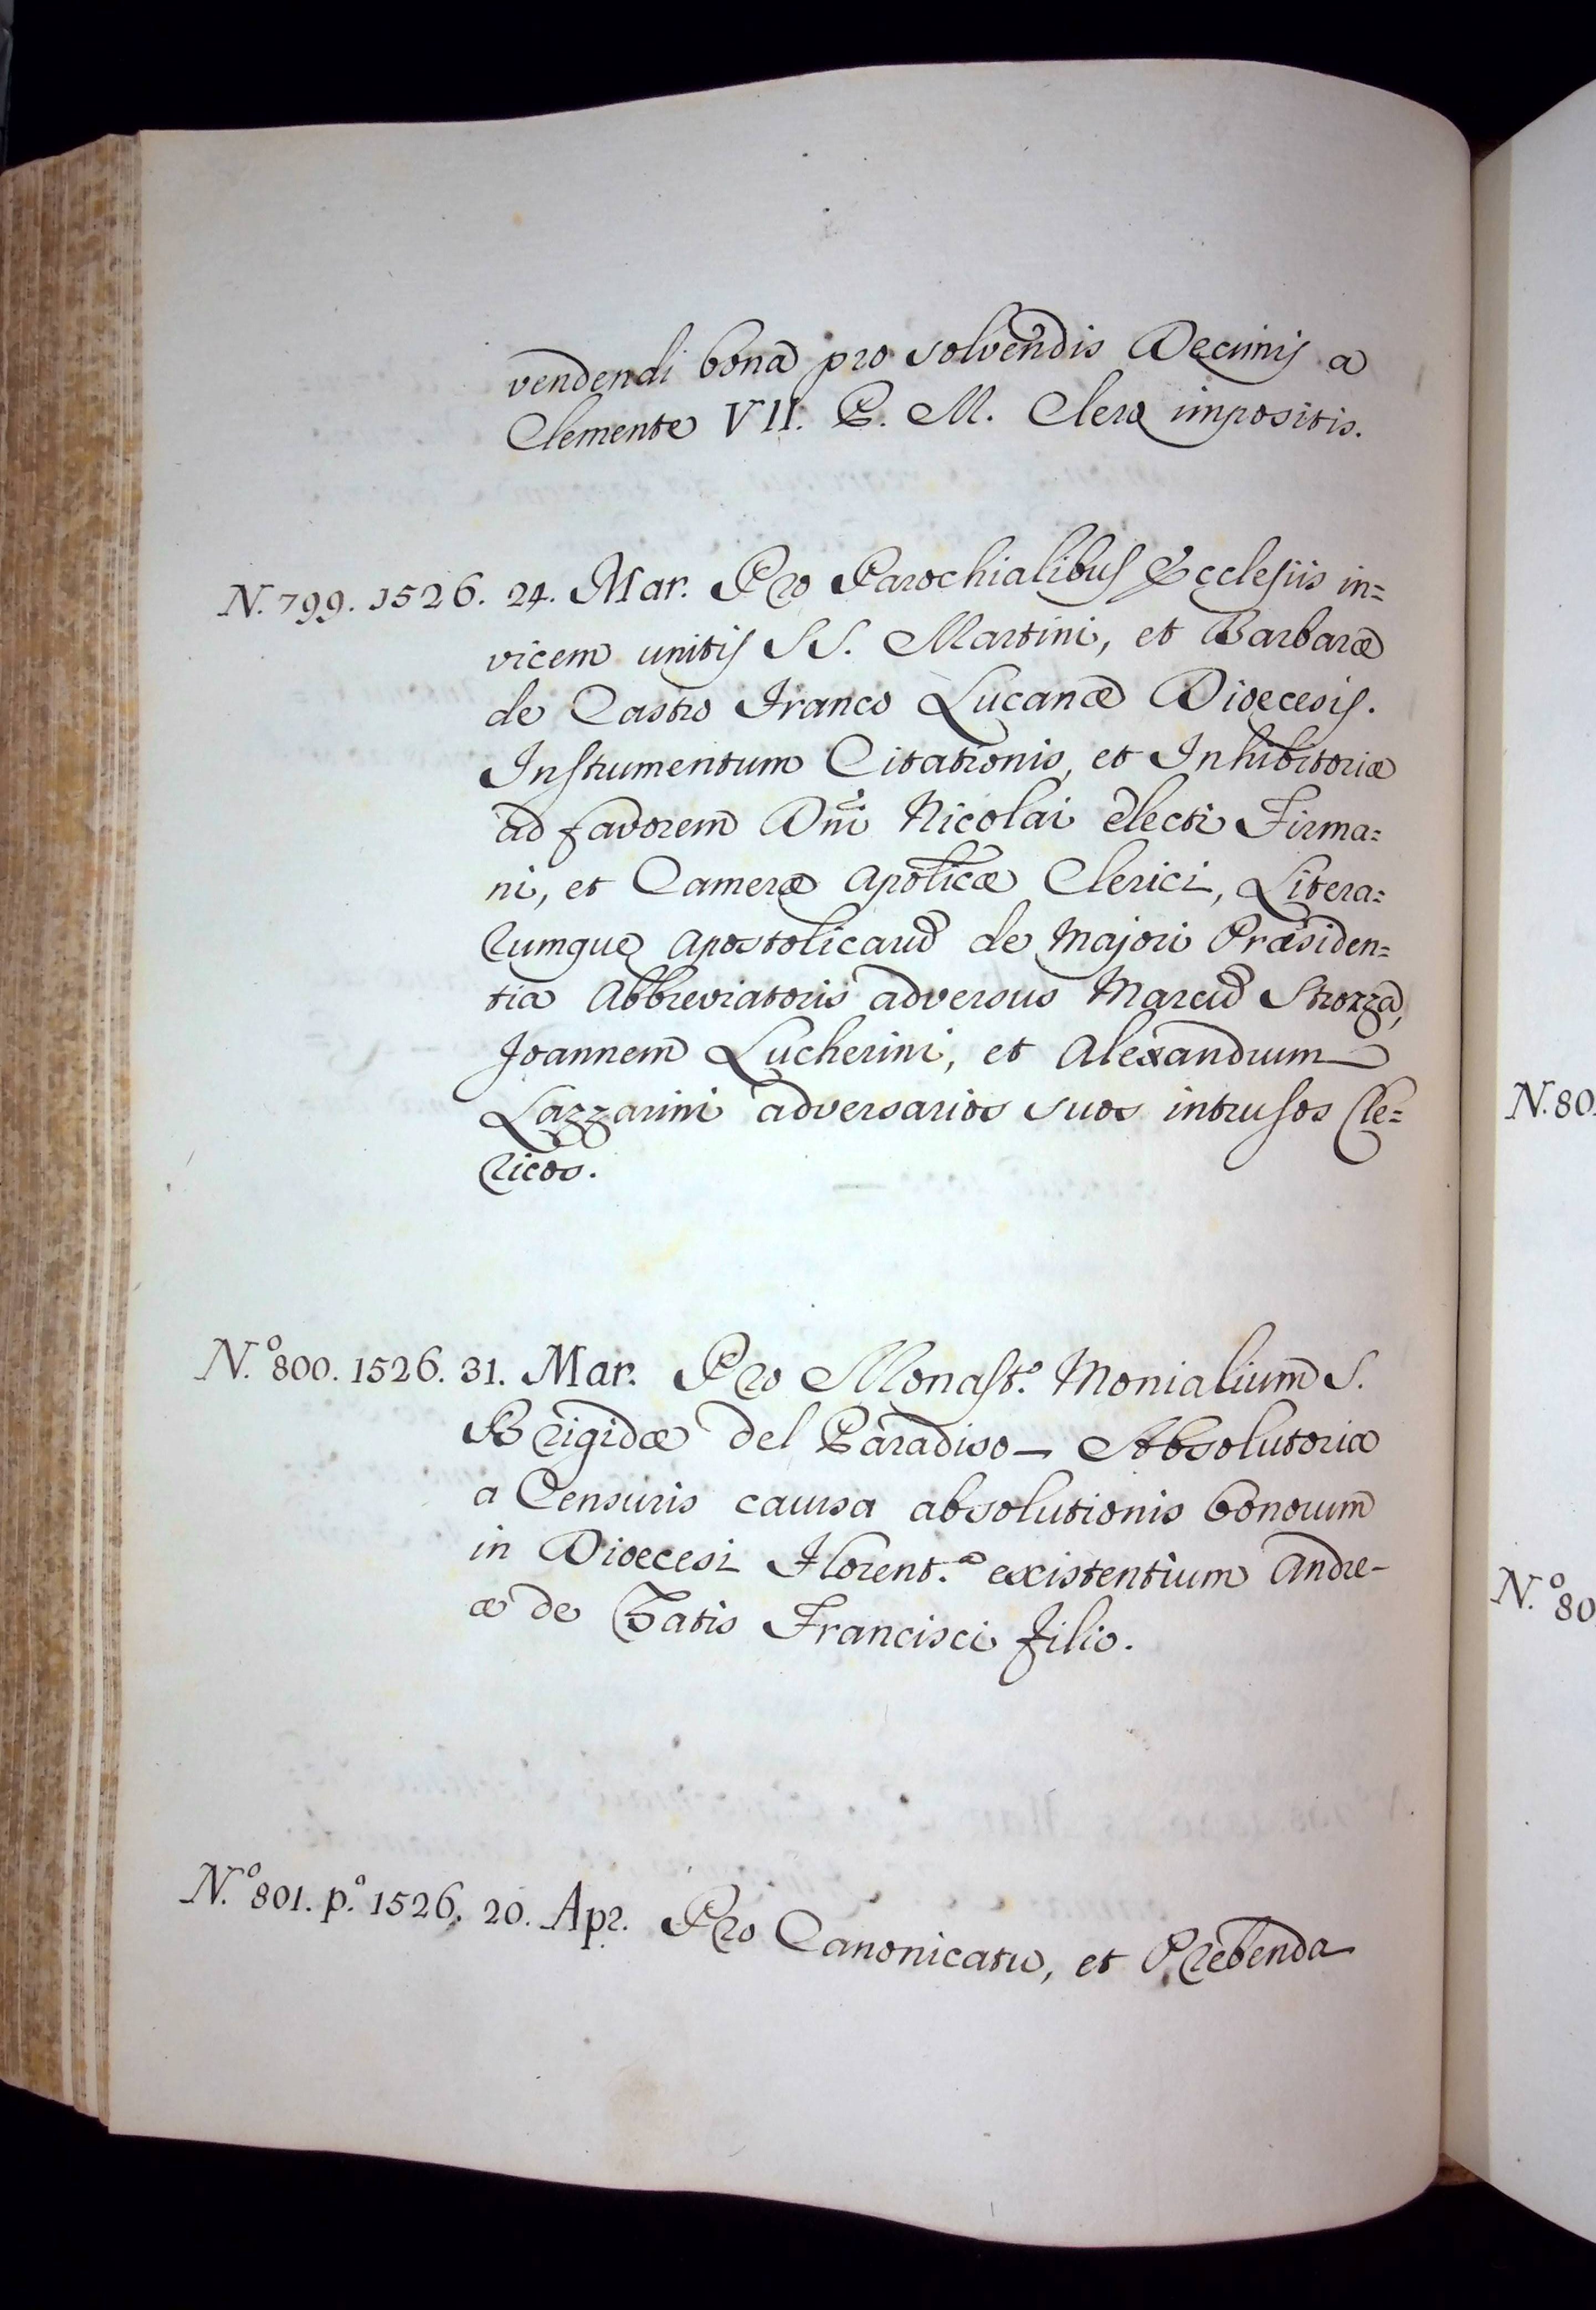 vendendi bona pro solvendis Decimis a
Clemente VII. P. M. Clero impositis.
N. 799. 1526. 24. Mar. Pro Parochialibus Ecclesiis in=
vicem unitis SS. Martini, et Barbaræ
de Castro Franco Lucanæ Dioecesis.
Instrumentum Citationis, et Inhibitoriæ
ad favorem Dñi Nicolai electi Firma=
ni, et Cameræ Aplicæ Clerici, Litera=
rumque Apostolicarũ de Majori Præsiden=
tia Abbreviatoris adversus Marcũ Strozza,
Joannem Lucherini, et Alexandrum
Lazzarini adversarios suos intrusos Cle=
ricos.
N.º 800. 1526. 31. Mar. Pro Monast.º Monialium S.
Brigidæ del Paradiso - Absolutoria
a Censuris causa absolutionis bonorum
in Dioecesi Florent.ª existentium Andre-
æ de Tatis Francisci filio.
N.º 801. p.º 1526. 20. Apr. Pro Canonicatu, et Prebenda
N. 80
N.º 80